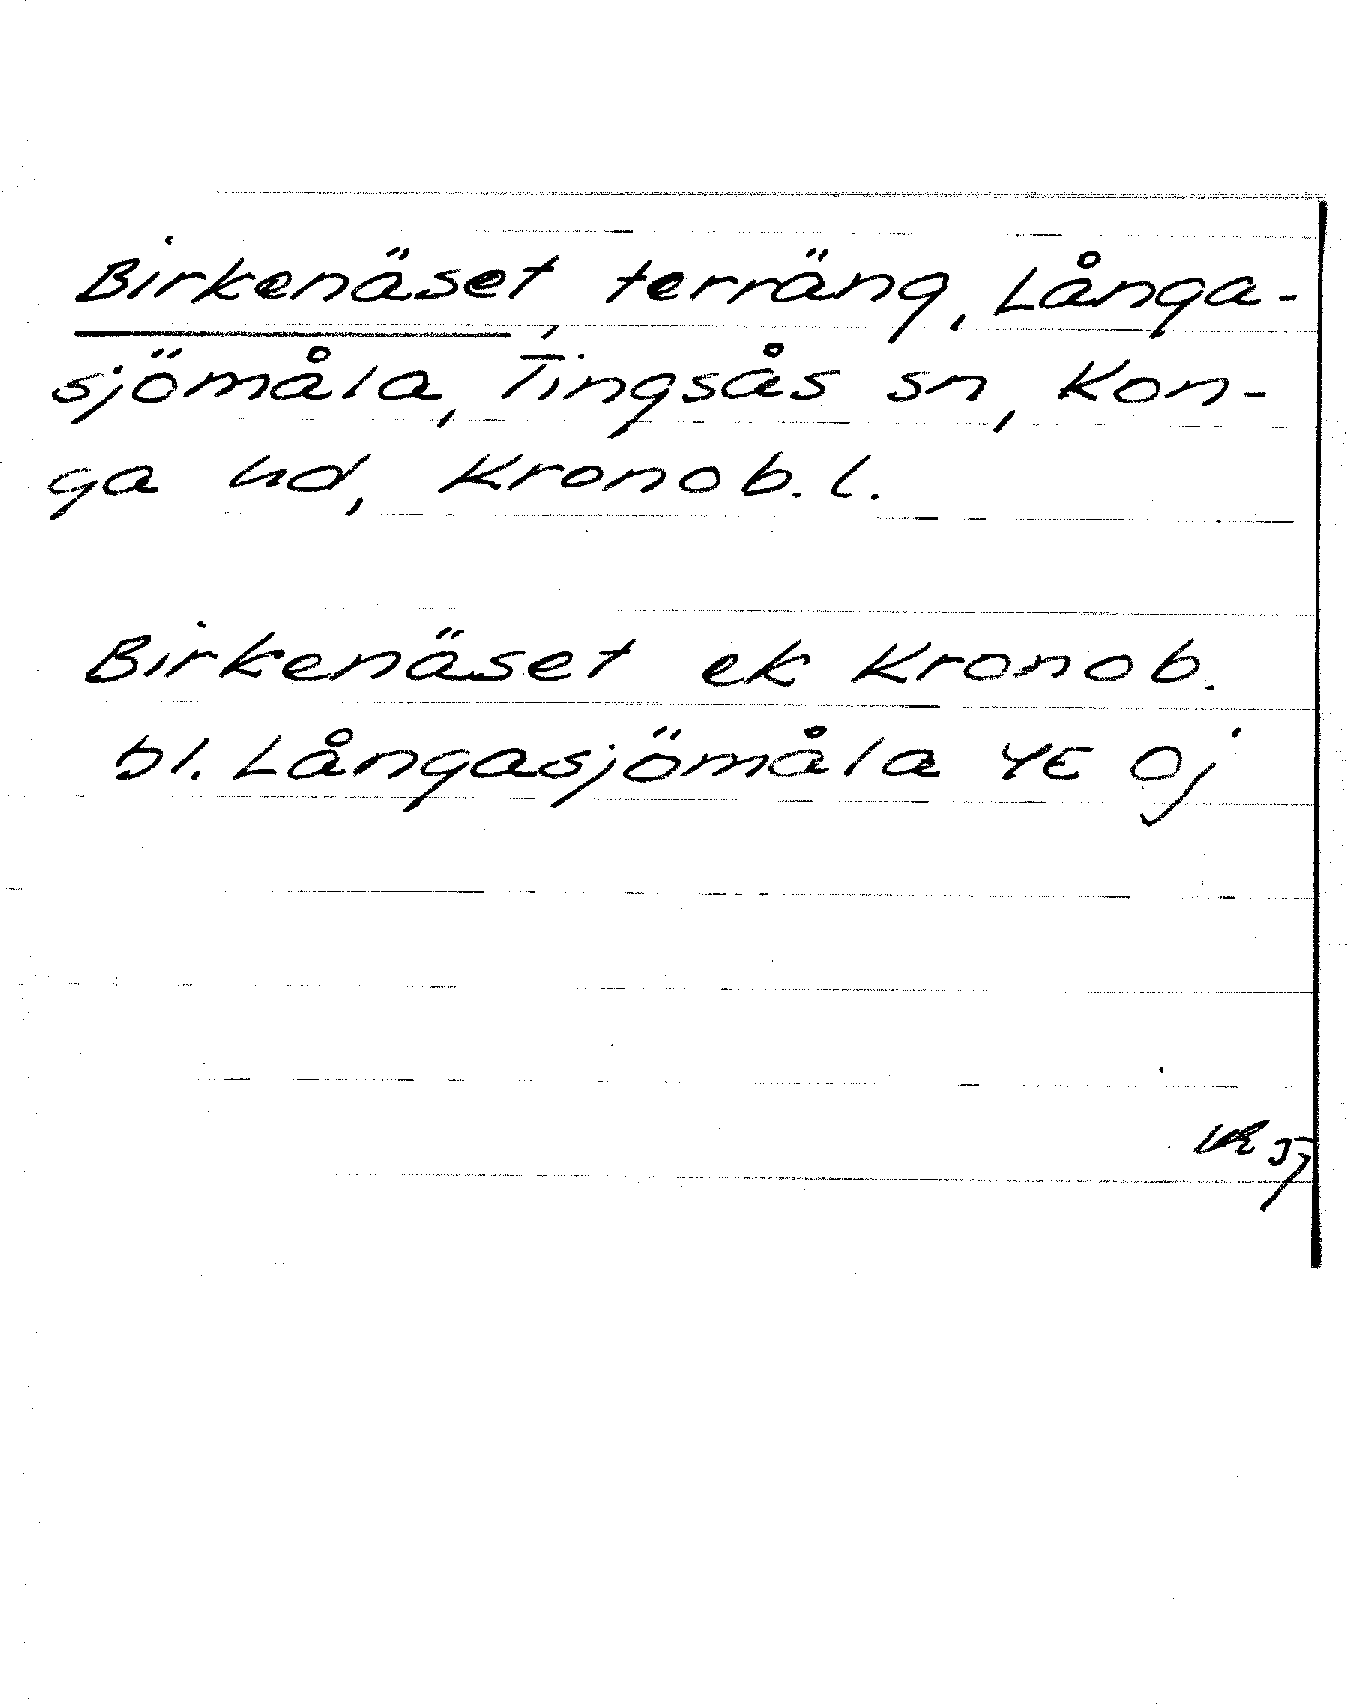 Birkenäset, terräng, Långa-
sjömåla, Tingsås sn, Kon-
ga hd, Kronob. l.
Birkenäset ek Kronob.
bl. Långasjömåla 4E 0j